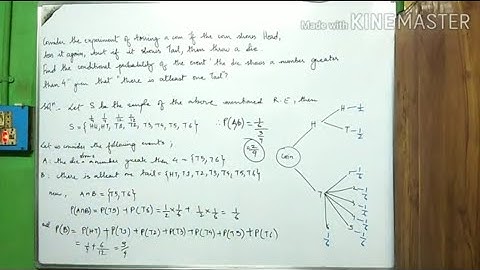 Made with KINEMASTER
Consider the experiment of tossing a coin If the coin shows Head,
toss it again, but if it shows Tail, then throw a die
Find the conditional probability of the event 'the die shows a number greater
than 4' given that "there is atleast one Tail"?
Solⁿ:- Let S be the sample of the above mentioned R.E, then
1/4 1/4 1/12 1/12
S = {HH, HT, T1, T2, T3, T4, T5, T6}
∴ P(A/B) = 1/6 / 3/4
= 2/9
Let us consider the following events;
A: the die shows number greater than 4 = {T5, T6}
B: there is atleast one tail = {HT, T1, T2, T3, T4, T5, T6}
now, A∩B = {T5, T6}
P(A∩B) = P(T5) + P(T6) = 1/2 × 1/6 + 1/2 × 1/6 = 1/6
and P(B) = P(HT) + P(T1) + P(T2) + P(T3) + P(T4) + P(T5) + P(T6)
= 1/4 + 6/12 = 3/4
Coin
H
T
H - 1/2
T - 1/2